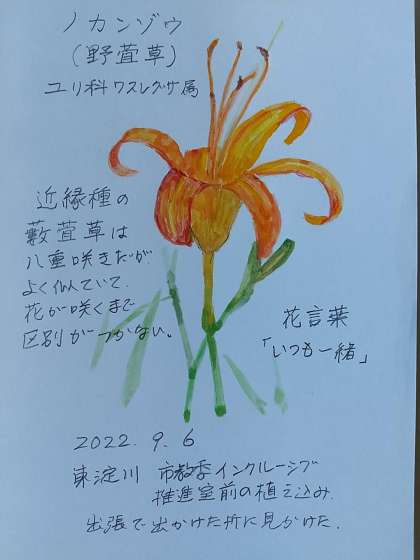 ノカンゾウ
(野萱草)
ユリ科ワスレグサ属
近縁種の
藪萱草は
八重咲きだが
よく似ていて、
花が咲くまで
区別がつかない。
花言葉
「いつも一緒」
2022.9.6
東淀川 市教委インクルーシブ
推進室前の植え込み。
出張で出かけた所に見かけた。